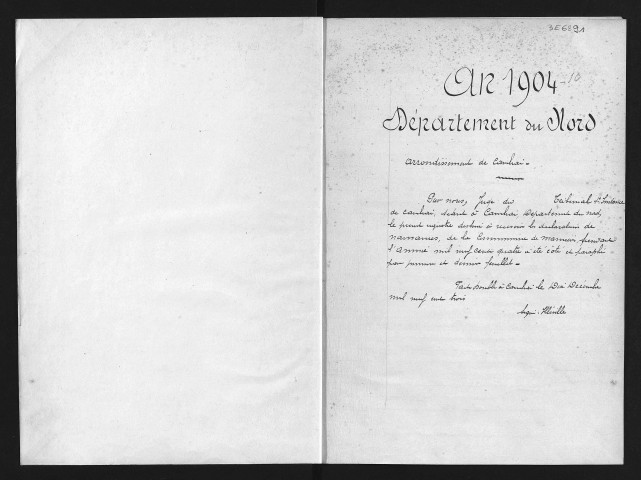 3E6891
An 1904 - 10
Département du Nord
Arrondissement de Cambrai
Par nous, Juge du Tribunal de 1re Instance
de Cambrai, séant à Cambrai Département du Nord,
le présent registre destiné à recevoir les déclarations de
naissances, de la Commune de pendant
l'année mil neuf cent quatre a été coté et paraphé
par premier et dernier feuillet
Fait double à Cambrai le Décembre
mil neuf cent trois
Signé: